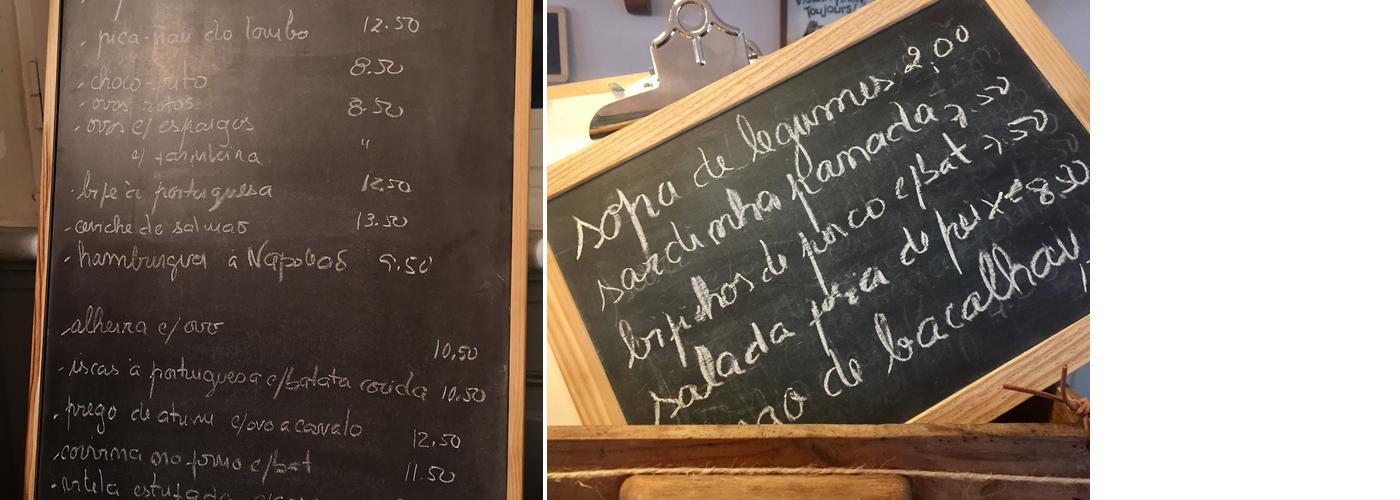 . pica-pau do lombo 12.50
. choco frito 8.50
. ovos rotos 8.50
. ovos c/ espargos
c/ farinheira "
. bife à portuguesa 12,50
. ceviche de salmão 13.50
. hamburguer à Napoleão 9.50
. alheira c/ovo
10,50
. iscas à portuguesa c/batata cozida 10.50
. prego de atum c/ovo a cavalo
12.50
. corvina no forno c/bat 11.50
. vitela estufada
Toujours!
sopa de legumes 2,00
sardinha panada 7,50
bifinhos de porco c/bat 7,50
salada fria de peixe 8.50
de bacalhau